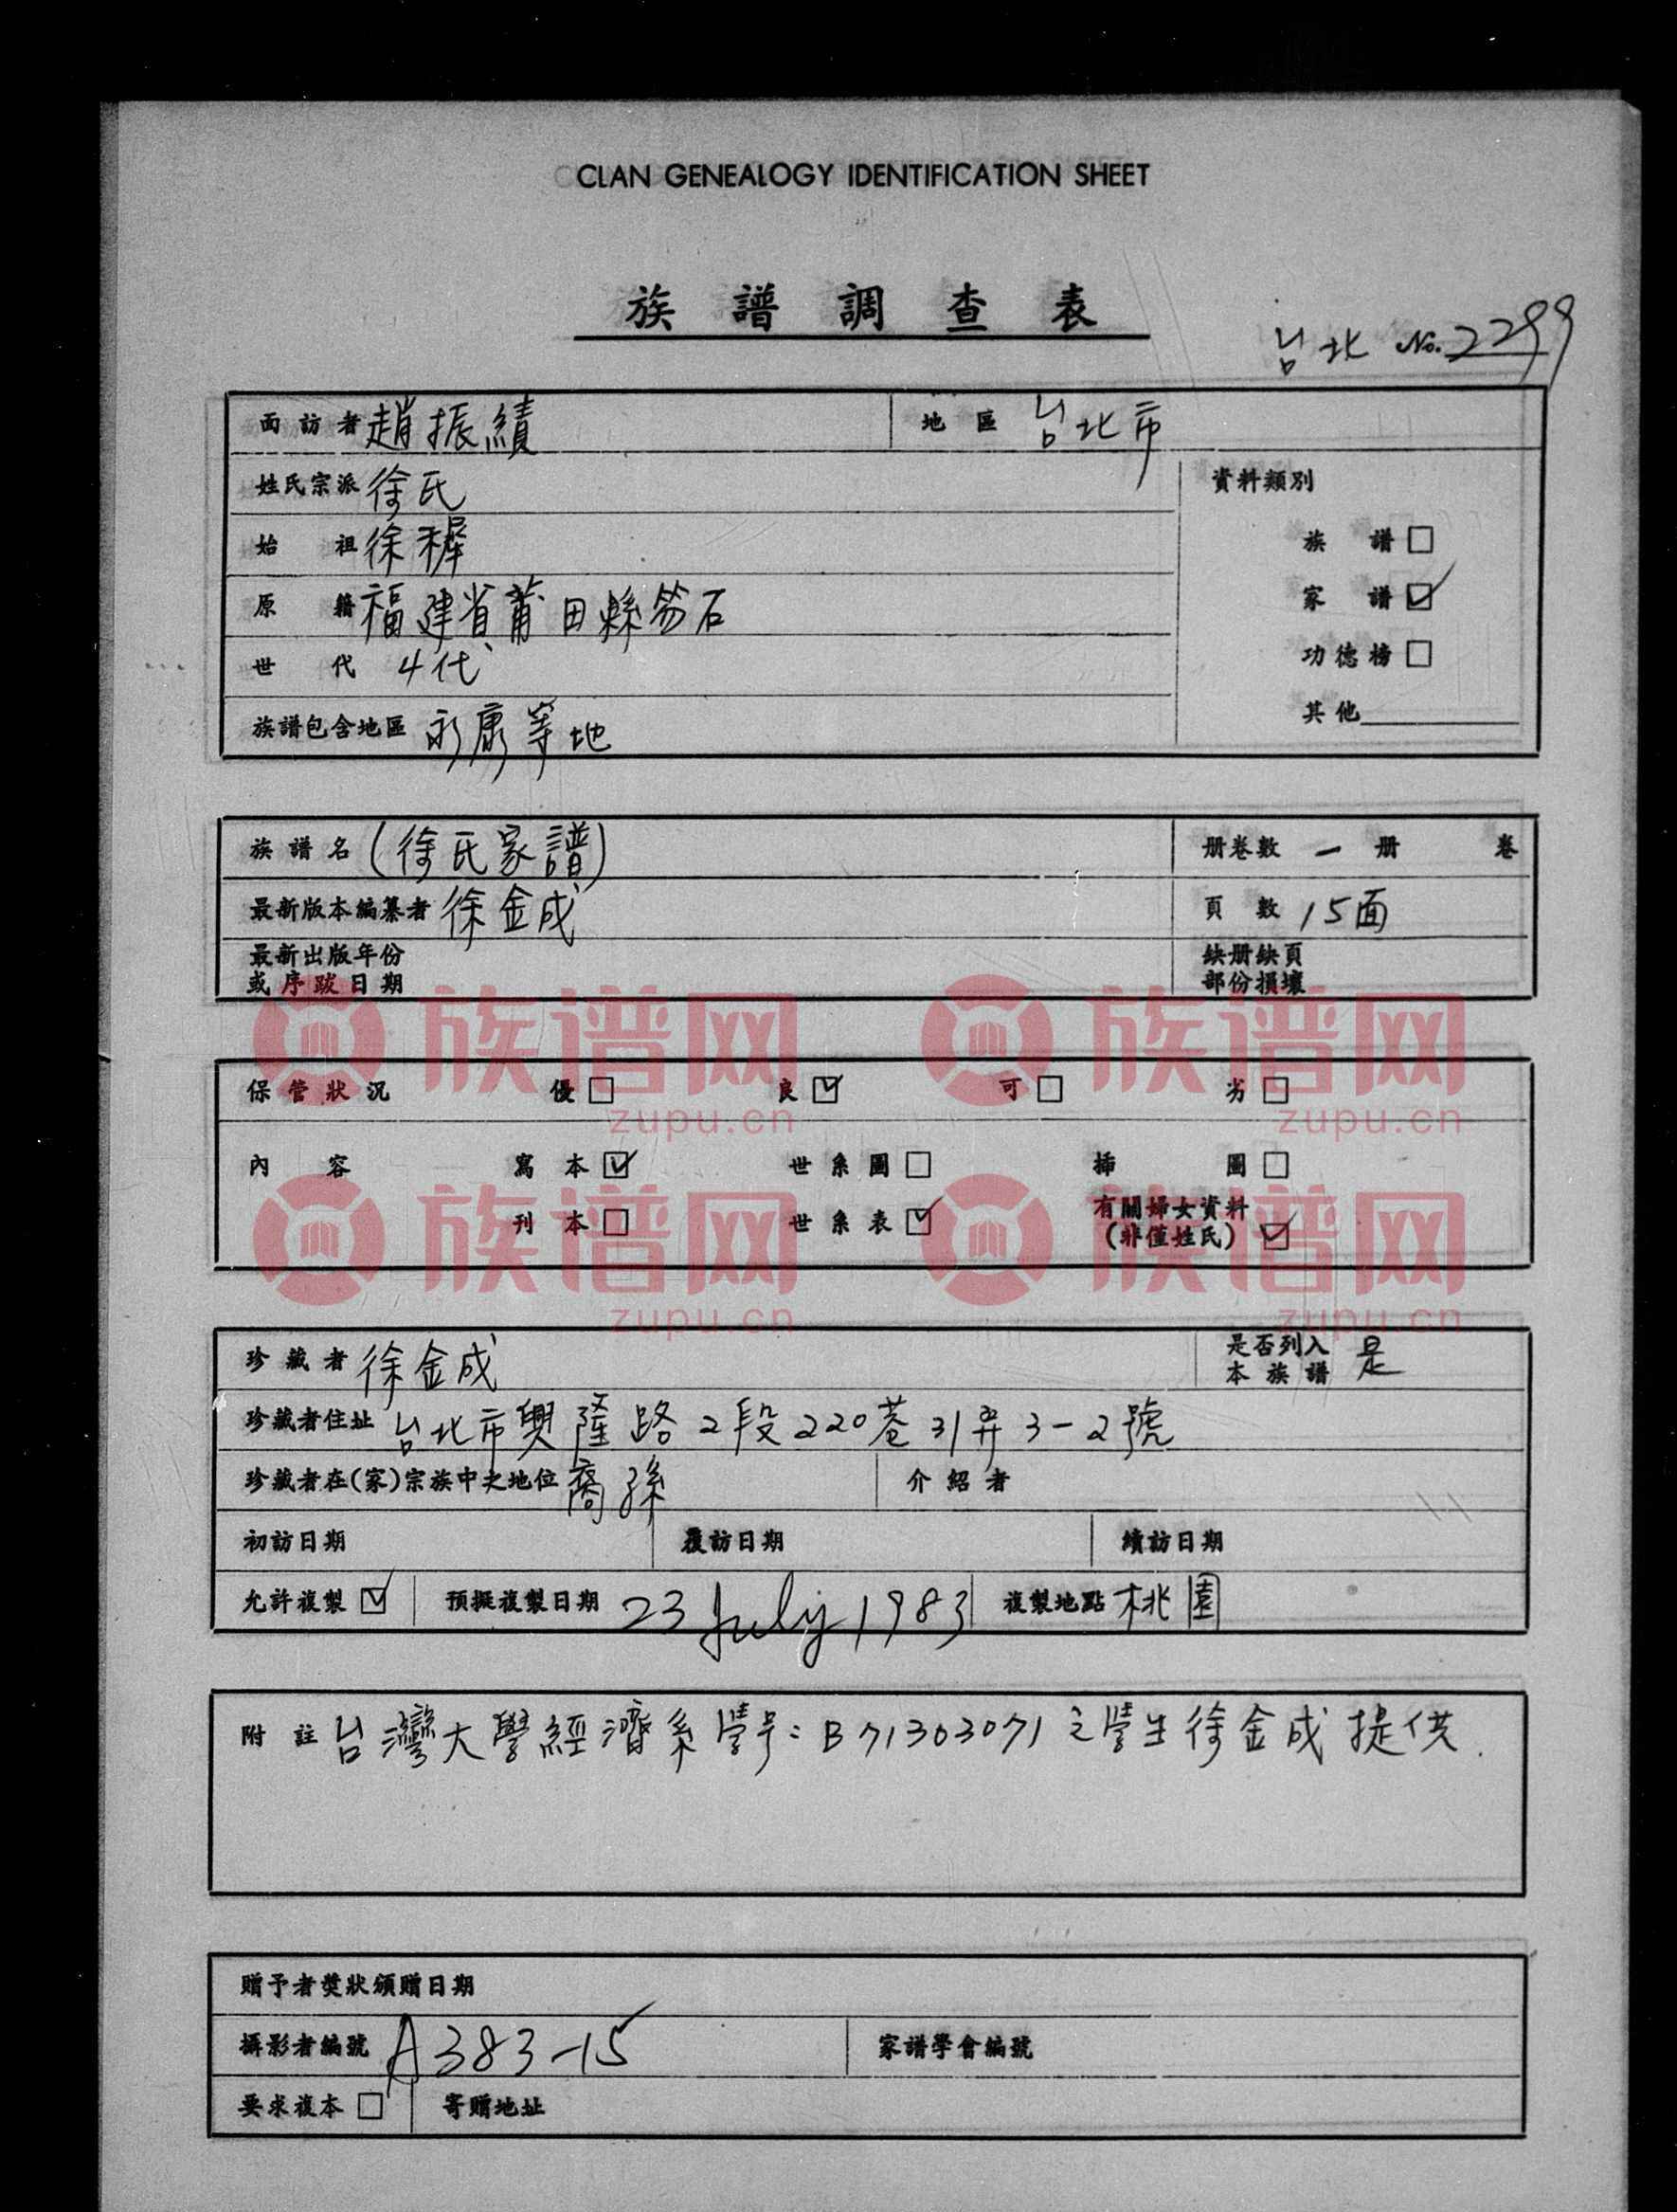 CLAN GENEALOGY IDENTIFICATION SHEET
族譜調查表
台北 No. 2299
面訪者 趙振績 地區 台北市
姓氏宗派 徐氏 資料類別
始祖 徐樨 族譜□
原籍 福建省莆田縣笏石 家譜☑
世代 4代 功德榜□
族譜包含地區 永康等地 其他
族譜名 (徐氏家譜) 册卷數 一 册 卷
最新版本編纂者 徐金成 頁數 15面
最新出版年份 缺册缺頁
或序跋日期 部份損壞
族谱网 族谱网
保管狀況 優□ 良☑ 可□ 劣□
zupu.cn zupu.cn
內容 寫本☑ 世系圖□ 插圖□
族谱网 族谱网
刊本□ 世系表☑ 有關婦女資料
(非僅姓氏)☑
zupu.cn zupu.cn
珍藏者 徐金成 是否列入
本族譜 是
珍藏者住址 台北市興隆路2段220巷31弄3-2號
珍藏者在(家)宗族中之地位 裔孫 介紹者
初訪日期 覆訪日期 續訪日期
允許複製☑ 預擬複製日期 23 July 1983 複製地點 桃園
附註 台灣大學經濟系學号:B71303071之學生徐金成提供.
贈予者獎狀頒贈日期
攝影者編號 A383-15 家譜學會編號
要求複本□ 寄贈地址